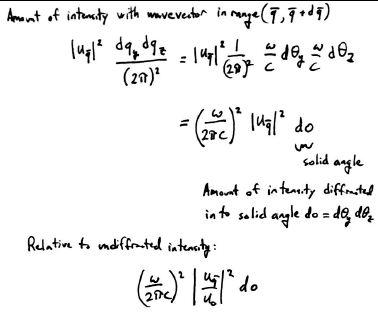 Amount of intensity with wavevector in range (q̄, q̄ + dq̄)
|u_q̄|² dq_y dq_z / (2π)² = |u_q̄|² 1/(2π)² ω/c dθ_y ω/c dθ_z
= (ω/2πc)² |u_q̄|² do
solid angle
Amount of intensity diffracted
into solid angle do = dθ_y dθ_z
Relative to undiffracted intensity:
(ω/2πc)² |u_q̄/u_0|² do